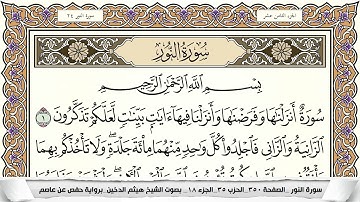 الجزء الثامن عشر
سورة النور ٢٤
سُورَةُ النُّورِ
بِسْمِ اللَّهِ الرَّحْمَٰنِ الرَّحِيمِ
سُورَةٌ أَنزَلْنَٰهَا وَفَرَضْنَٰهَا وَأَنزَلْنَا فِيهَآ ءَايَٰتٍۭ بَيِّنَٰتٍ لَّعَلَّكُمْ تَذَكَّرُونَ ١
ٱلزَّانِيَةُ وَٱلزَّانِى فَٱجْلِدُوا۟ كُلَّ وَٰحِدٍ مِّنْهُمَا مِا۟ئَةَ جَلْدَةٍ وَلَا تَأْخُذْكُم بِهِمَا
سورة النور _الصفحة ٣٥٠_ الحزب ٣٥_الجزء ١٨_ بصوت الشيخ هيثم الدخين_برواية حفص عن عاصم